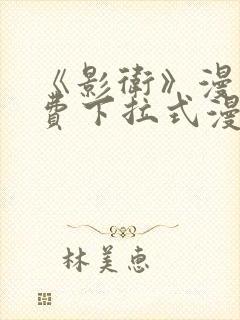 《影衛》漫
費下拉式漫
林美惠